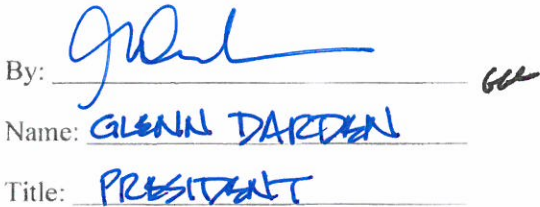 By:
Name: GLENN DARDEN
Title: PRESIDENT